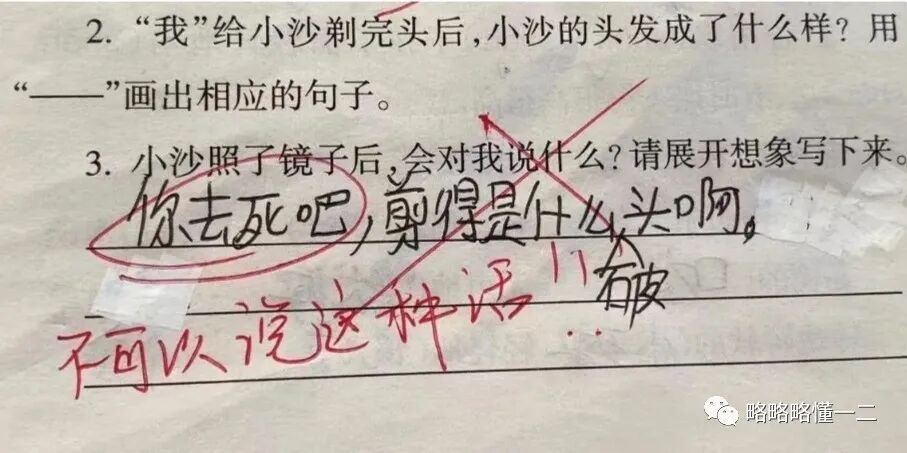 2. “我”给小沙剃完头后，小沙的头发成了什么样？用
“——”画出相应的句子。
3. 小沙照了镜子后，会对我说什么？请展开想象写下来。
你去死吧，剪得是什么破头啊。
不可以说这种话！！
略略略懂一二